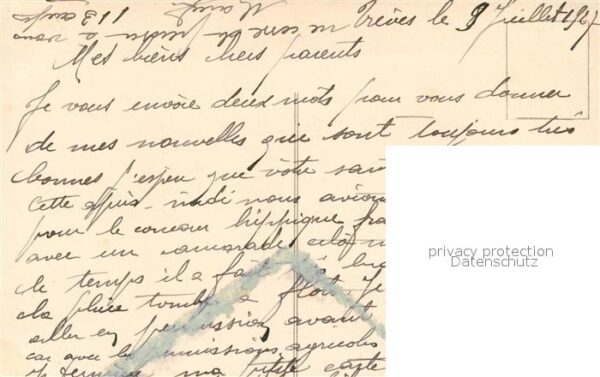 Trèves le 9 Juillet 1927
Mes biens chers parents
Je vous envoie deux mots pour vous donner
de mes nouvelles qui sont toujours très
bonnes j'espère que votre san
Cette après-midi nous avions
pour le concour hippique fra
avec un camarade
le temps il a fait
la pluie tombe a flots je
aller en permission avant
car avec les permissions agricoles
Je termine ma petite carte
privacy protection
Datenschutz